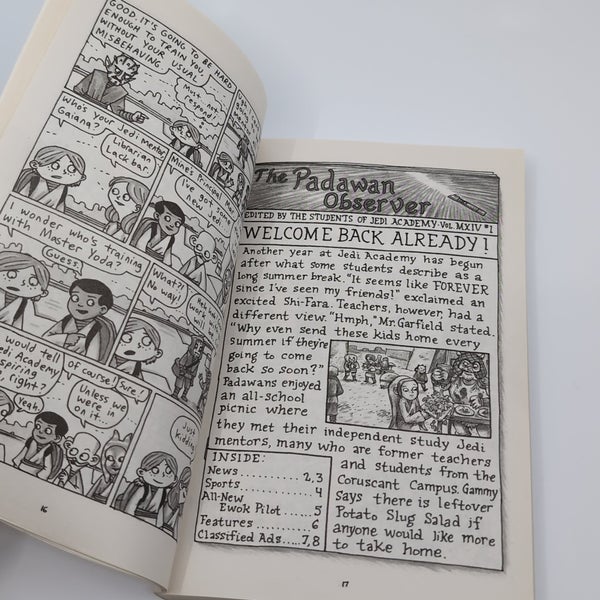 GOOD. IT'S GOING TO BE HARD
ENOUGH TO TRAIN YOU
WITHOUT YOUR USUAL
MISBEHAVING.
Must not
respond!
Who's your Jedi mentor,
Gaiana?
Librarian
Lackbar.
Mine's Principal
I've got some
new Jedi
I wonder who's training
with Master Yoda?
Guess.
What?!
No way!
work
will
would tell
Jedi Academy
spiring
right?
Yeah.
Of course!
Sure!
Unless we
were in
on it...
Just
kidding
16
The Padawan
Observer
EDITED BY THE STUDENTS OF JEDI ACADEMY • VOL. MXIV #1
WELCOME BACK ALREADY!
Another year at Jedi Academy has begun
after what some students describe as a
long summer break. "It seems like FOREVER
since I've seen my friends!" exclaimed an
excited Shi-Fara. Teachers, however, had a
different view. "Hmph," Mr. Garfield stated.
"Why even send these kids home every
summer if they're
going to come
back so soon?"
Padawans enjoyed
an all-school
picnic where
they met their independent study Jedi
mentors, many who are former teachers
and students from the
Coruscant Campus. Gammy
says there is leftover
Potato Slug Salad if
anyone would like more
to take home.
INSIDE:
News .......... 2,3
Sports ............ 4
All-New
Ewok Pilot ..... 5
Features ......... 6
Classified Ads ..... 7,8
17